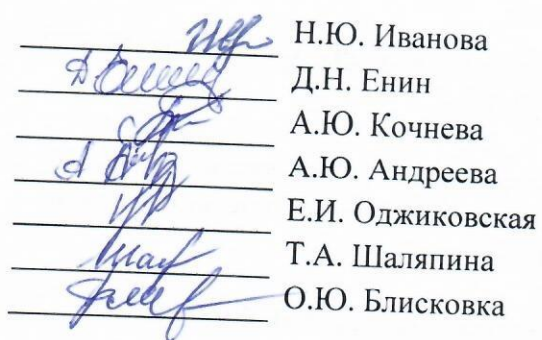 Н.Ю. Иванова
Д.Н. Енин
А.Ю. Кочнева
А.Ю. Андреева
Е.И. Оджиковская
Т.А. Шаляпина
О.Ю. Блисковка